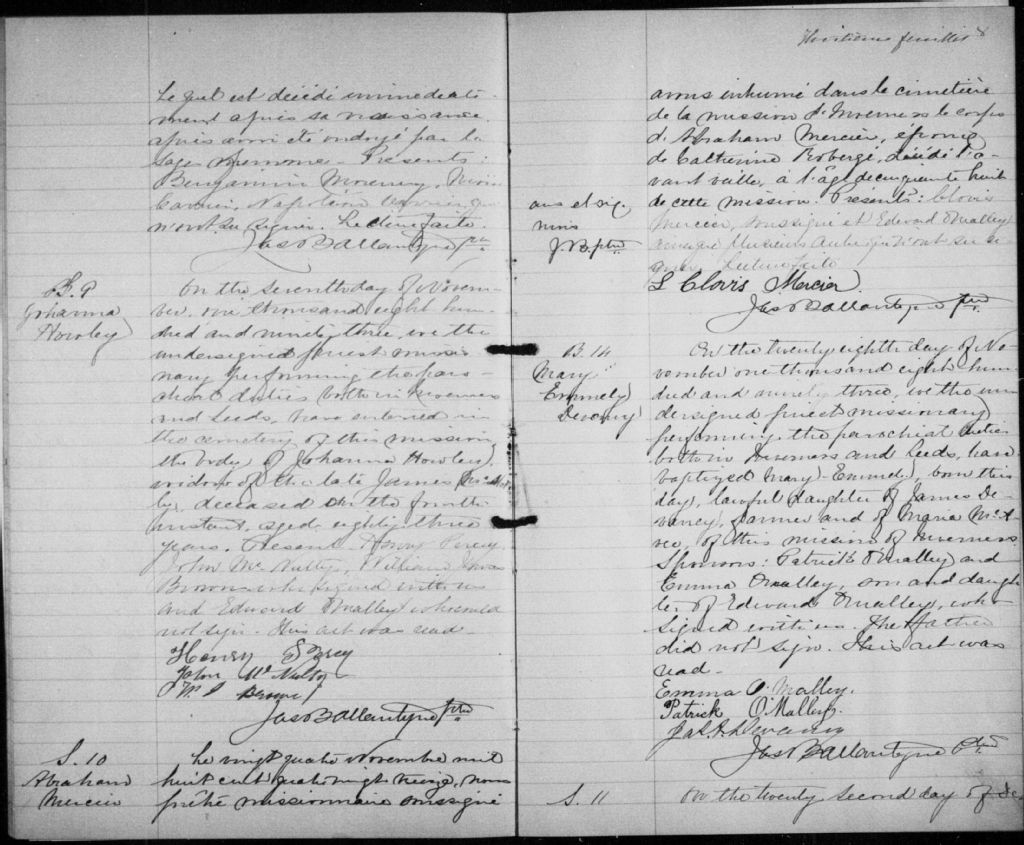 Le quel est décédé immédiate-
ment après sa naissance
après avoir été ondoyé par la
sage femme - Présents:
Benjamin
Napoléon
n'ont su signer. Lecture faite.
Jas Ballantyne ptre.
B. 9
Johanna
Howley
On the seventh day of Novem-
ber one thousand eight hun-
dred and ninety three, we the
undersigned priest missio-
nary performing the paro-
chial duties both in Inverness
and Leeds, have interred in
the cemetery of this mission
the body of Johanna Howley
widow of the late James
deceased on the fourth
instant, aged eighty three
years. Present Henry
John McNulty, William
Brown who signed with us
and Edward O'Malley who could
not sign. This act was read.
Henry
John McNulty
Wm Brown
Jas Ballantyne ptre
S. 10
Abraham
Mercier
Le vingt quatre Novembre mil
huit cent quatre vingt treize, nous
prêtre missionnaire soussigné
8
avons inhumé dans le cimetière
de la mission d'Inverness le corps
d'Abraham Mercier, époux
de Catherine Roberge, décédé l'a-
vant veille, à l'âge de cinquante huit
ans et six
mois
J.B. ptre
de cette mission. Présents: Clovis
Mercier, soussigné et Edward O'Malley
plusieurs autres qui n'ont su si-
gner. Lecture faite
L Clovis Mercier
Jas Ballantyne ptre.
B. 14
Mary
Emmely
Devaney
On the twenty eighth day of No-
vember one thousand eight hun-
dred and ninety three, we the un-
dersigned priest missionary
performing the parochial duties
both in Inverness and Leeds, have
baptized Mary-Emmely, born this
day, lawful daughter of James De-
vaney, farmer and of Maria
of this mission of Inverness.
Sponsors: Patrick O'Malley and
Emma O'Malley, son and daugh-
ter of Edward O'Malley, who
signed with us. The Father
did not sign. This act was
read.
Emma O'Malley.
Patrick O'Malley.
Jas. Devaney
Jas Ballantyne Ptre
S. 11
On the twenty second day of De